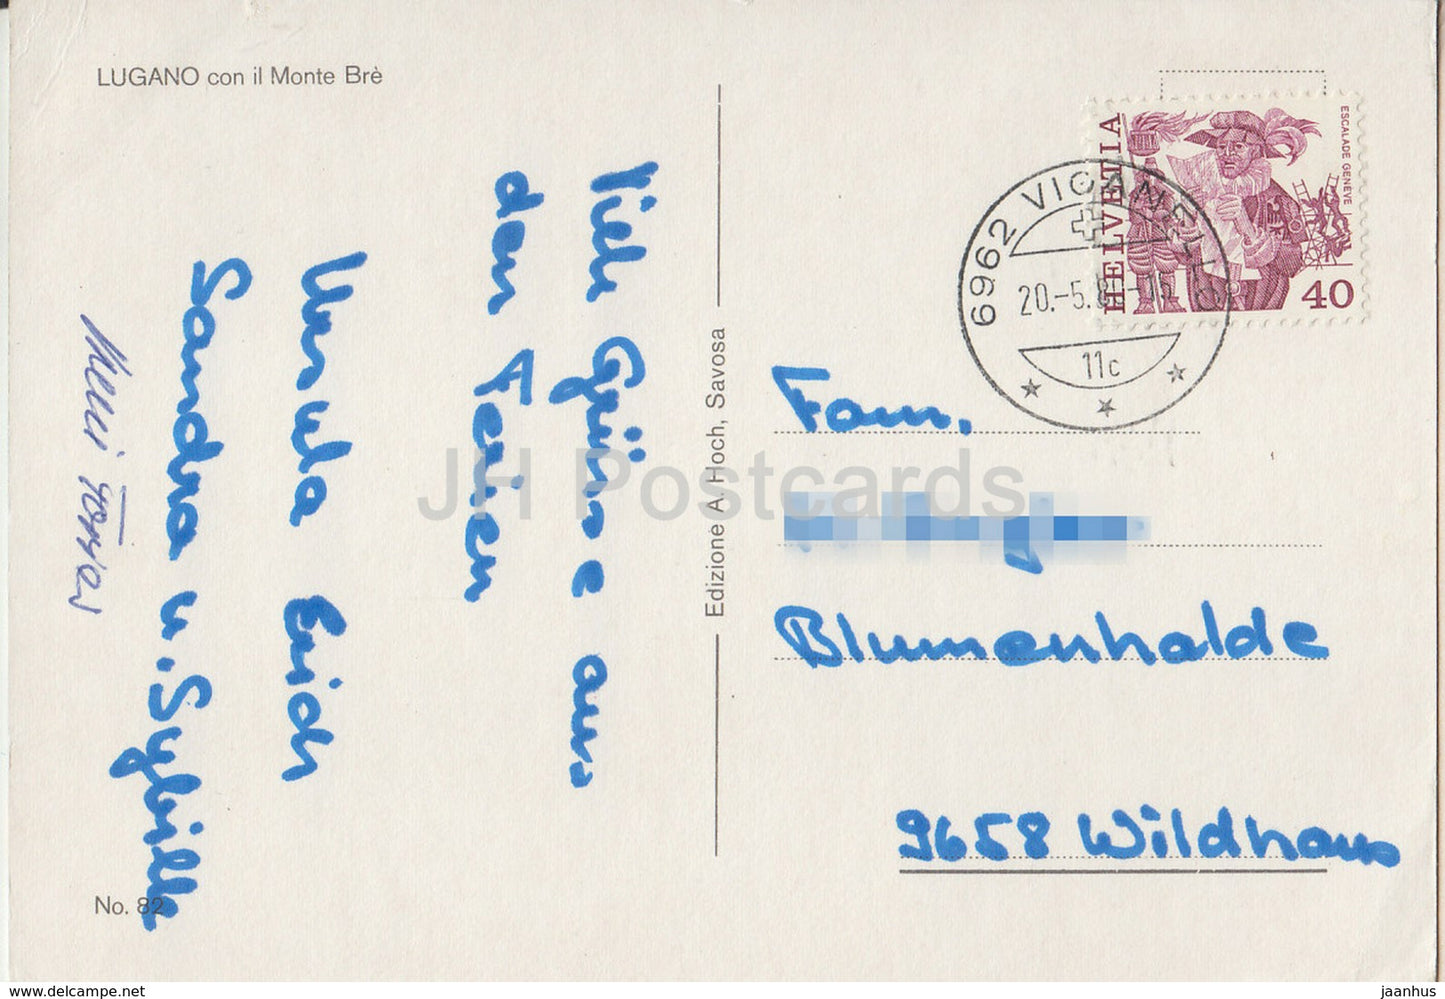 LUGANO con il Monte Brè
Viele Grüsse aus
den Ferien
Ursula Erich
Sandra u. Sybille
No. 82
Edizione A. Hoch, Savosa
HELVETIA
ESCALADE GENEVE
40
6962 VIGANELLO
20.-5.8
11c
Fam.
Blumenhalde
9658 Wildhaus
JH Postcards
www.delcampe.net
jaanhus